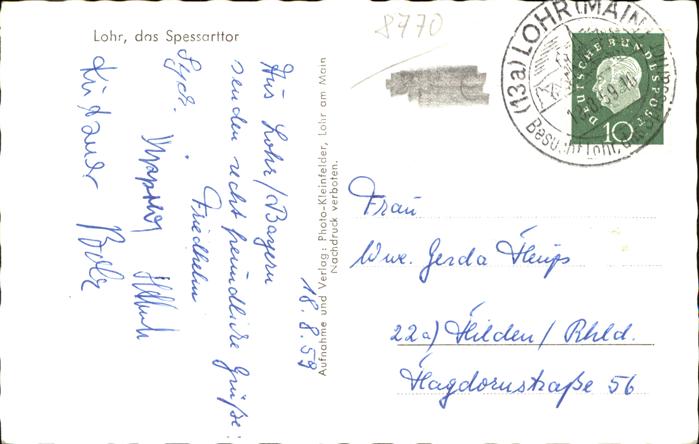 Lohr, das Spessarttor
8770
18.8.59
Aus Lohr/Bayern
senden recht freundliche Grüße:
Friedhelm
Aufnahme und Verlag: Photo-Kleinfelder, Lohr am Main
Nachdruck verboten.
(13a) LOHR (MAIN)
Besucht Lohr, das
DEUTSCHE BUNDESPOST
10
Frau
Wwe. Gerda Heups
22a) Hilden/Rhld.
Hagdornstraße 56